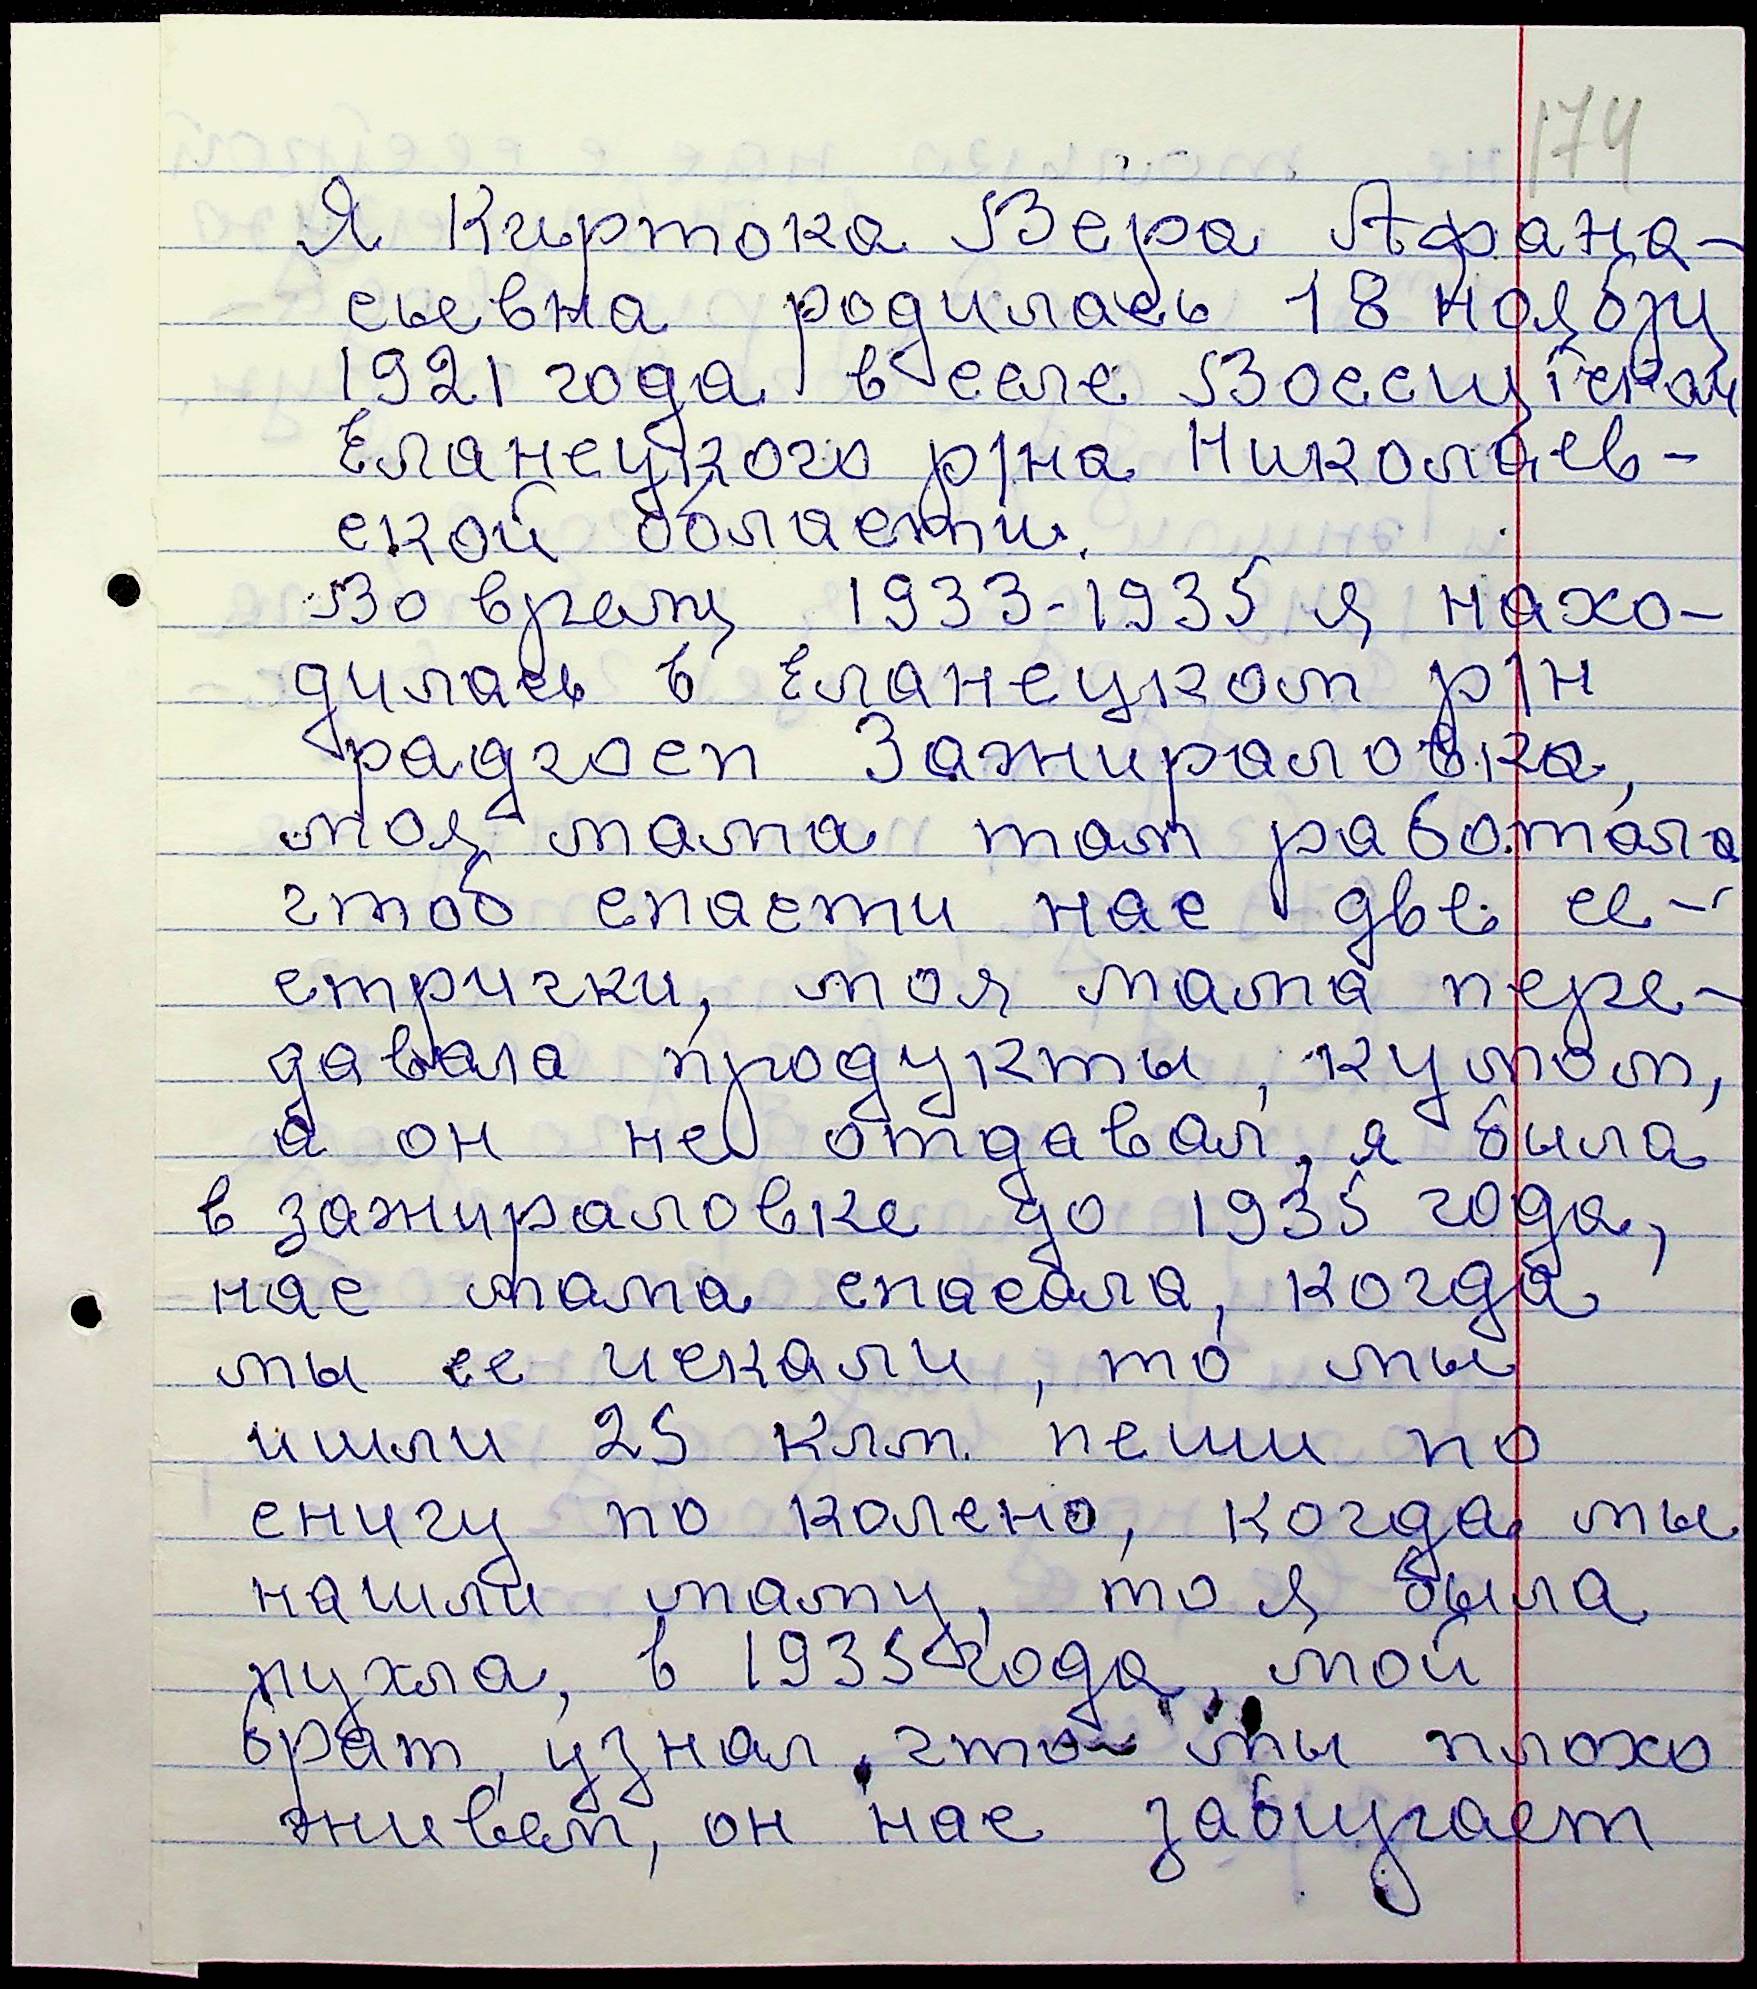 174
Я Киртока Вера Афана-
сьевна родилась 18 ноября
1921 года в селе
Еланецкого р/на Николаев-
ской области.
Во время 1933-1935 я нахо-
дилась в Еланецком р/н
радгосп Зажираловка,
моя мама там работала
чтоб спасти нас две се-
стрички, моя мама пере-
давала продукты, кумом,
а он не отдавал, я была
в зажираловке до 1935 года,
нас мама спасала, когда
мы ее искали, то мы
ишли 25 клм. пеши по
снигу по колено, когда мы
нашли маму, то я была
пухла, в 1935 года, мой
брат, узнал, что мы плохо
живем, он нас